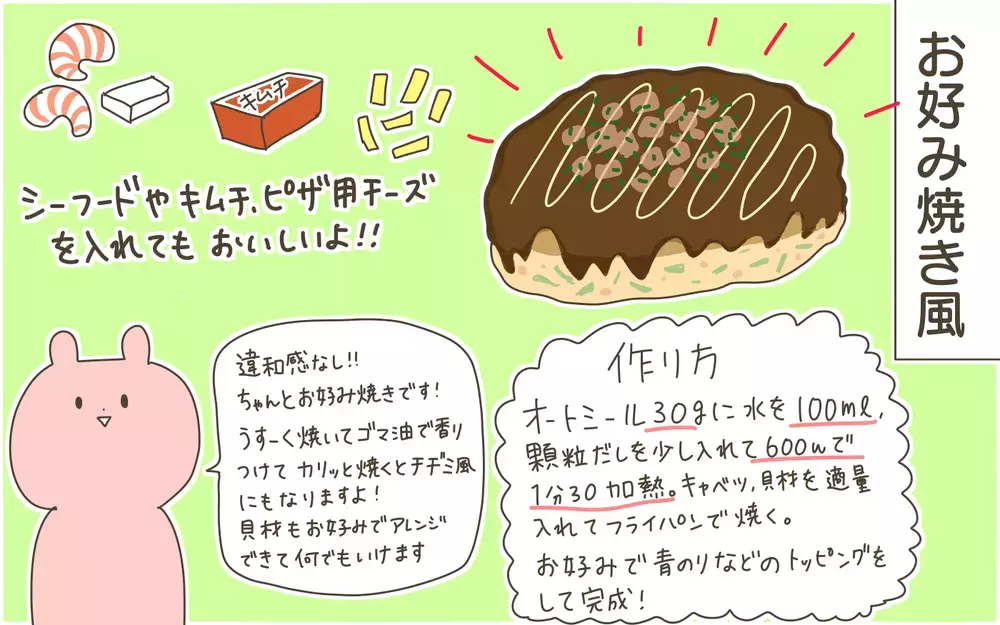 お好み焼き風
キムチ
シーフードやキムチ、ピザ用チーズ
を入れてもおいしいよ!!
違和感なし!!
ちゃんとお好み焼きです!
うすーく焼いてゴマ油で香り
つけてカリッと焼くとチヂミ風
にもなりますよ!
具材もお好みでアレンジ
できて何でもいけます
作り方
オートミール30gに水を100ml,
顆粒だしを少し入れて600wで
1分30加熱。キャベツ,具材を適量
入れてフライパンで焼く。
お好みで青のりなどのトッピングを
して完成!